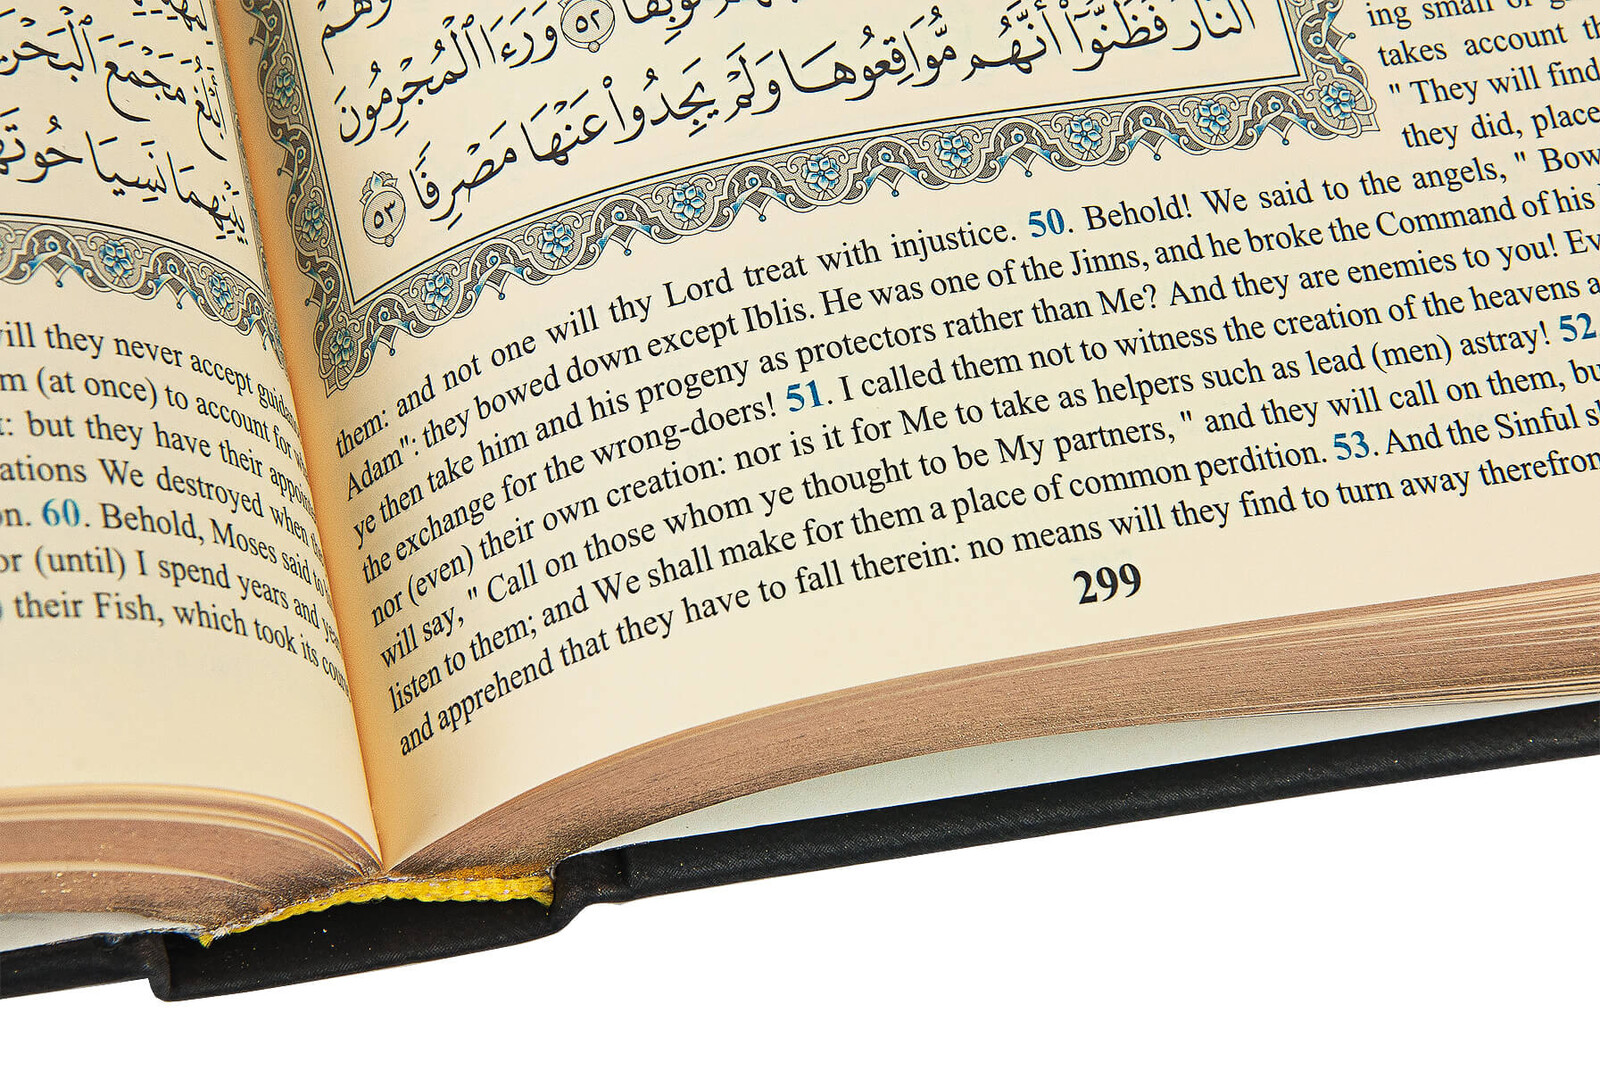 مَجْمَعَ
نَسِيَا حُوتَهُ
will they never accept
(at once) to account for
but they have their
We destroyed when
60. Behold, Moses said to
(until) I spend years and
their Fish, which took its
النَّارَ فَظَنُّوٓا۟ أَنَّهُم مُّوَاقِعُوهَا وَلَمْ يَجِدُوا۟ عَنْهَا مَصْرِفًا ٥٣
٥٢ وَرَءَا ٱلْمُجْرِمُونَ
ing small
takes account
" They will find
they did, place
them: and not one will thy Lord treat with injustice. 50. Behold! We said to the angels, " Bow
Adam": they bowed down except Iblis. He was one of the Jinns, and he broke the Command of his
ye then take him and his progeny as protectors rather than Me? And they are enemies to you!
the exchange for the wrong-doers! 51. I called them not to witness the creation of the heavens
nor (even) their own creation: nor is it for Me to take as helpers such as lead (men) astray! 52
will say, " Call on those whom ye thought to be My partners, " and they will call on them,
listen to them; and We shall make for them a place of common perdition. 53. And the Sinful
and apprehend that they have to fall therein: no means will they find to turn away
299